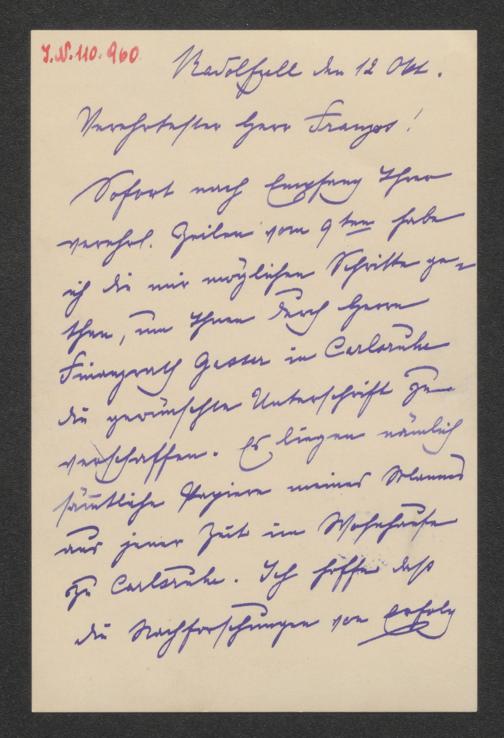 J.N. 110.960
Radolfzell den 12 Okt.
Verehrtester Herr Franzos!
Sofort nach Empfang Ihrer
verehrl. Zeilen vom 9ten habe
ich die mir möglichen Schritte ge-
than, um Ihnen durch Herrn
Finanzrath in Carlsruhe
die gewünschte Unterschrift zu
verschaffen. Es liegen nämlich
sämtliche Papiere meines Mannes
aus jener Zeit im Wohnhause
zu Carlsruhe. Ich hoffe daß
die Nachforschungen von Erfolg